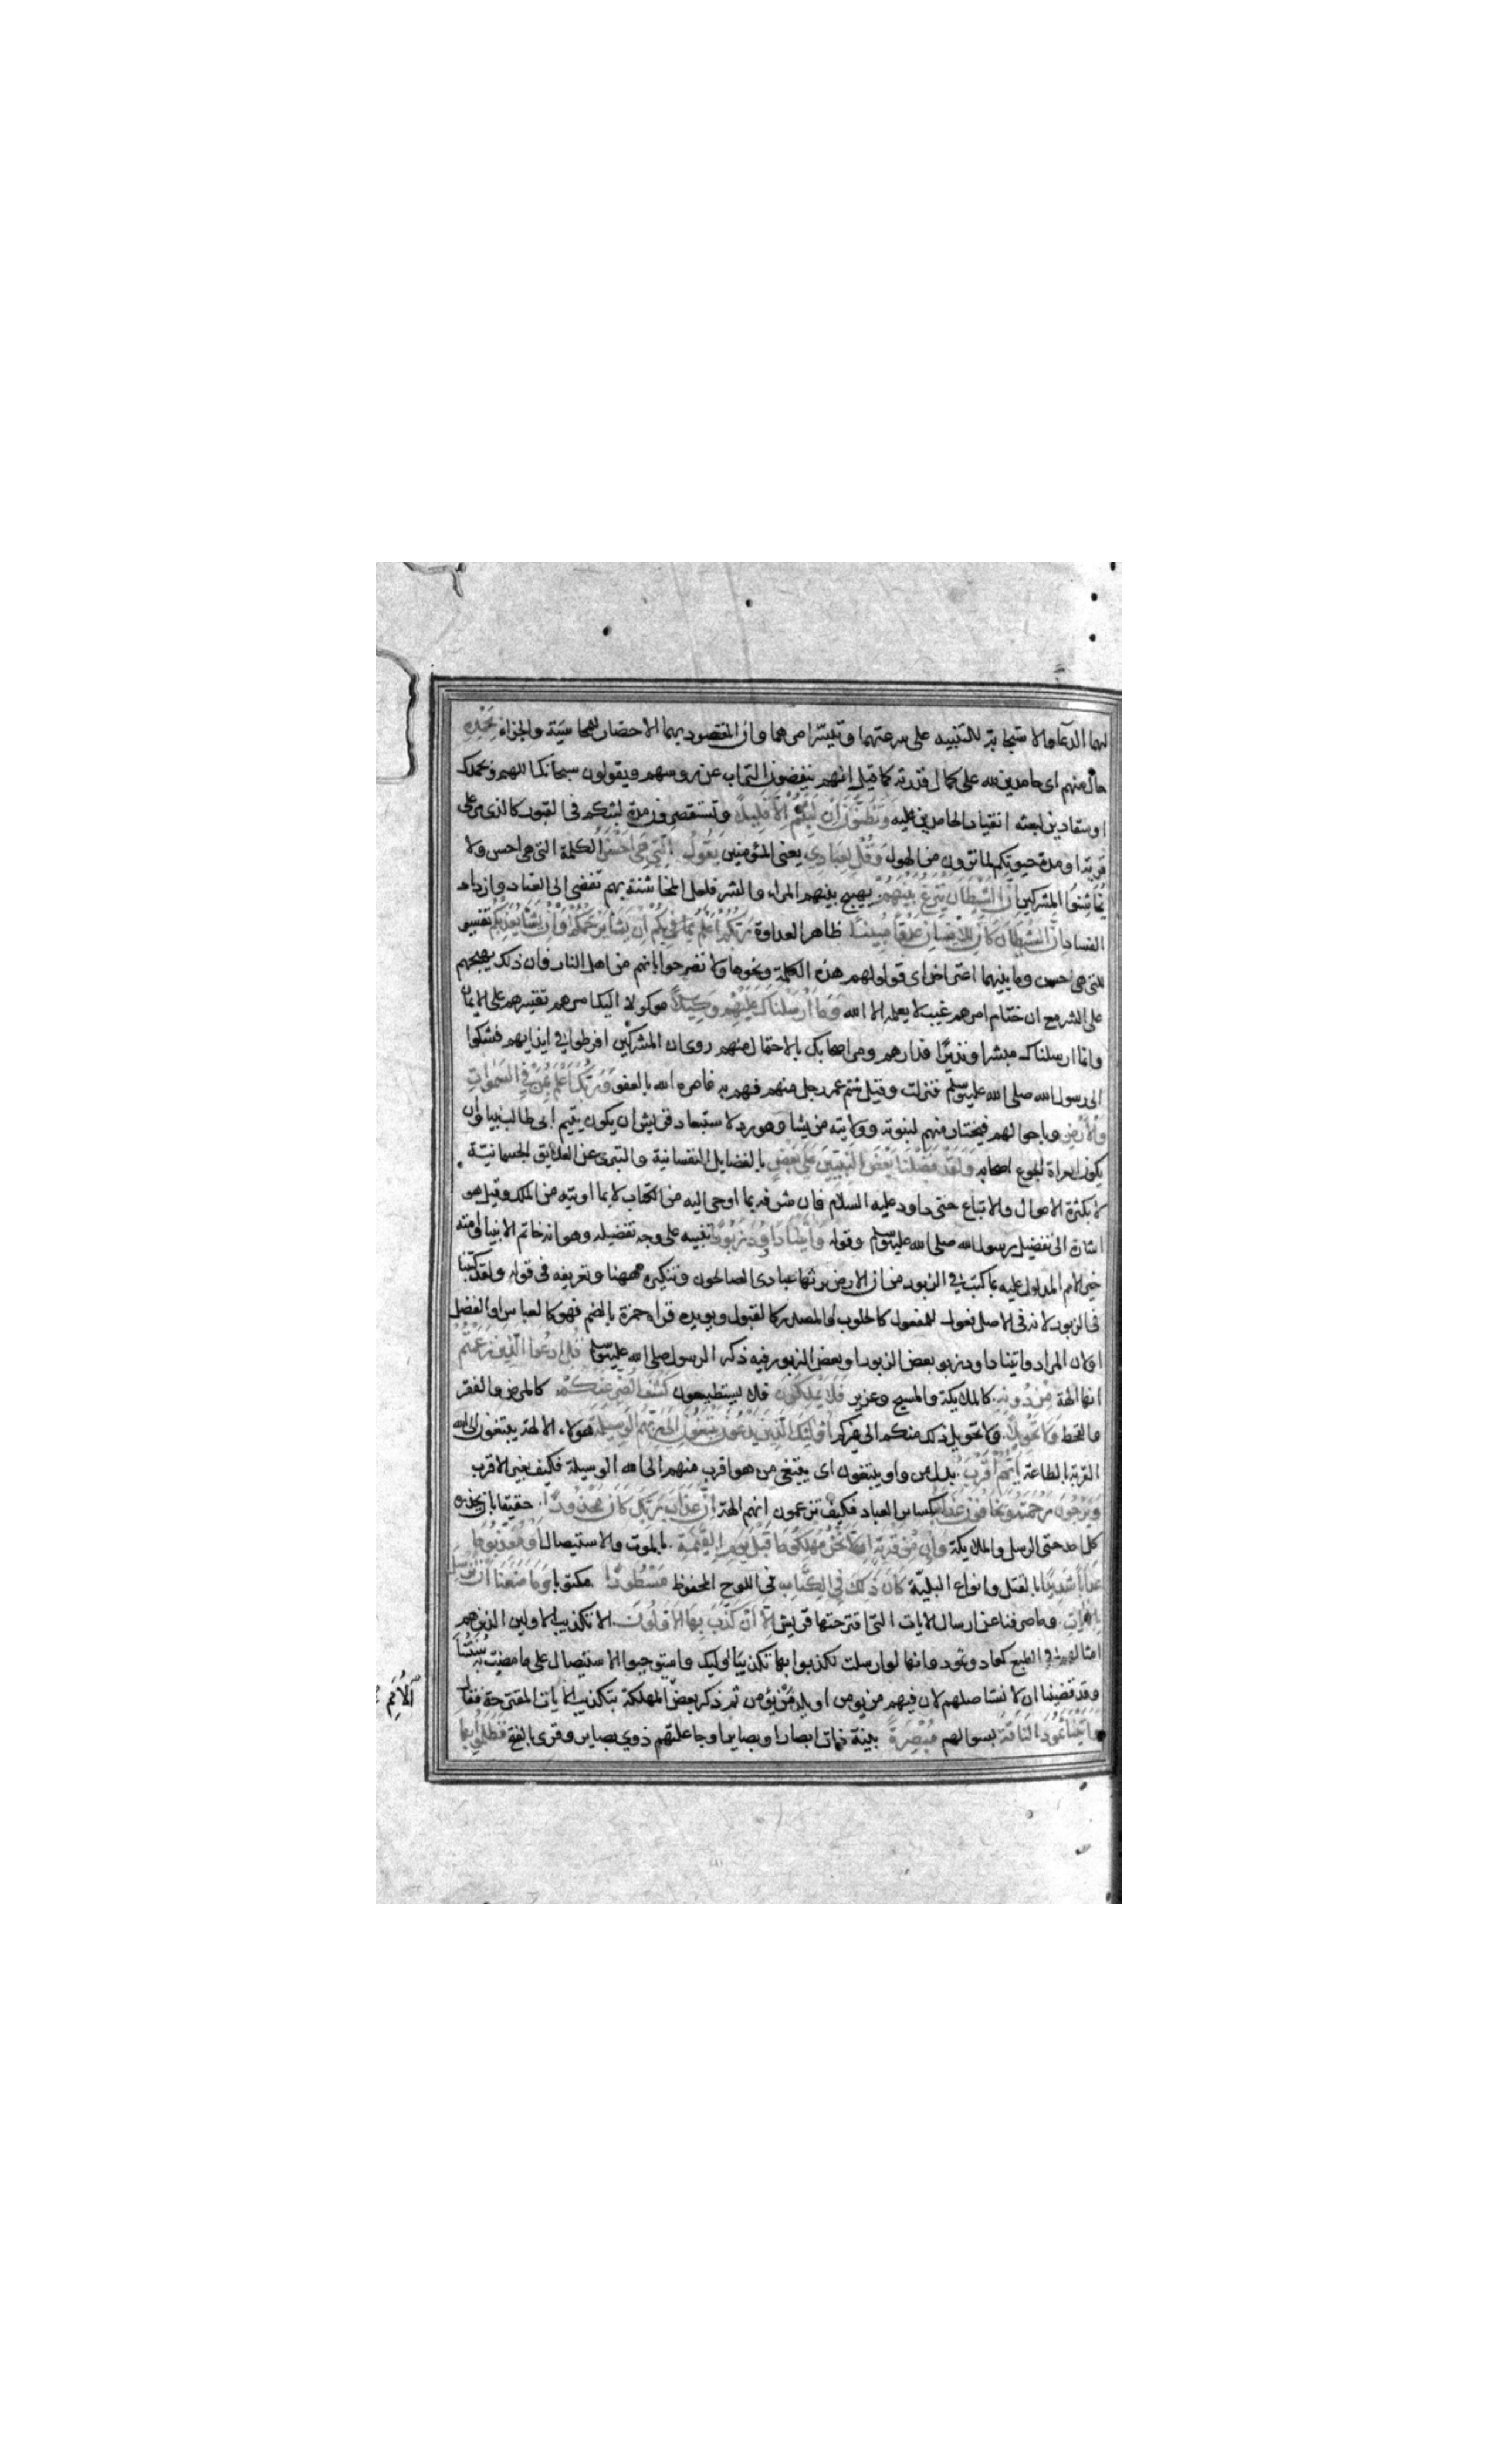 لهما الدعاء والاستجابة للتنبيه على سرعتهما وتيسّر امرهما وان المقصود بهما الاحضار للمحاسبة والجزاء بحمده
حال منهم اى حامدين لله على كمال قدرته كما قيل انهم ينفضون التراب عن روسهم ويقولون سبحانك اللهم وبحمدك
او منقادين لبعثه انقياد الحامدين عليه وَتَظُنُّونَ اِن لَبِثْتُمْ اِلَّا قَلِيلًا وتستقصرون مدة لبثكم فى القبور كالذى مر على
قرية او مدة حيوتكم لما ترون من الهول وَقُلْ لِعِبَادِي يعنى المؤمنين يَقُولُوا الَّتِي هِيَ اَحْسَنُ الكلمة التى هى احسن ولا
يُخاشنُوا المشركين اِنَّ الشَّيْطَانَ يَنزَغُ بَيْنَهُمْ يهيج بينهم المراء والشر فلعل المخاشنة بهم تفضى الى العناد وازدياد
الفساد اِنَّ الشَّيْطَانَ كَانَ لِلْاِنْسَانِ عَدُوًّا مُبِينًا ظاهر العداوة رَبُّكُمْ اَعْلَمُ بِكُمْ اِن يَشَأْ يَرْحَمْكُمْ اَوْ اِنْ يَشَأْ يُعَذِّبْكُمْ تفسير
للتى هى احسن وما بينهما اعتراض اى قولوا لهم هذه الكلمة ونحوها ولا تصرحوا بانهم من اهل النار فان ذلك يهيجهم
على الشر مع ان ختام امرهم غيب لا يعلمه الا الله وَمَا اَرْسَلْنَاكَ عَلَيْهِمْ وَكِيلًا موكولا اليك امرهم تقسرهم على الايمان
وانما ارسلناك مبشرا ونذيرًا فدارهم ومر اصحابك بالاحتمال منهم روى ان المشركين افرطوا فى ايذايهم فشكوا
الى رسول الله صلى الله عليه وسلم فنزلت وقيل شتم عمر رجل منهم فهم به فامره الله بالعفو وَرَبُّكَ اَعْلَمُ بِمَنْ فِي السَّمٰوَاتِ
وَالْاَرْضِ وباحوالهم فيختار منهم لنبوته وولايته من يشا وهو رد لاستبعاد قريش ان يكون يتيم ابى طالب نبيا وان
يكون العراة الجوع اصحابه وَلَقَدْ فَضَّلْنَا بَعْضَ النَّبِيِّينَ عَلٰى بَعْضٍ بالفضايل النفسانية والتبرى عن العلايق الجسمانيّة
لا بكثرة الاموال والاتباع حتى داود عليه السلام فان شرفه بما اوحى اليه من الكتاب لا بما اوتيه من الملك وقيل هو
اشارة الى تفضيل رسول الله صلى الله عليه وسلم وقوله وَاٰتَيْنَا دَاوُدَ زَبُورًا تنبيه على وجه تفضيله وهو انه خاتم الانبيا وامته
خير الامم المدلول عليه بما كتب فى الزبور من ان الارض يرثها عبادى الصالحون وتنكيره ههنا وتعريفه فى قوله ولقد كتبنا
فى الزبور لانه فى الاصل فعول للمفعول كالحلوب او المصدر كالقبول ويويده قراة حمزة بالضم فهو كالعباس او الفضل
او لان المراد واتينا داود زبو بعض الزبور او بعض الزبور فيه ذكر الرسول صلى الله عليه وسلم قُلِ ادْعُوا الَّذِينَ زَعَمْتُمْ
انها الهة مِنْ دُونِهِ كالملايكة والمسيح وعزير فَلَا يَمْلِكُونَ فلا يستطيعون كَشْفَ الضُّرِّ عَنْكُمْ كالمرض والفقر
والقحط وَلَا تَحْوِيلًا ولا تحويل ذلك منكم الى غيركم اُولٰئِكَ الَّذِينَ يَدْعُونَ يَبْتَغُونَ اِلٰى رَبِّهِمُ الْوَسِيلَةَ هولاء الالهة يبتغون الى الله
القربة بالطاعة اَيُّهُمْ اَقْرَبُ بدل من واو يبتغون اى يبتغى من هو اقرب منهم الى الله الوسيلة فكيف بغير الاقرب
وَيَرْجُونَ رَحْمَتَهُ وَيَخَافُونَ عَذَابَهُ كساير العباد فكيف تزعمون انهم الهة اِنَّ عَذَابَ رَبِّكَ كَانَ مَحْذُورًا حقيقا بان يحذره
كل احد حتى الرسل والملايكة وَاِنْ مِنْ قَرْيَةٍ اِلَّا نَحْنُ مُهْلِكُوهَا قَبْلَ يَوْمِ الْقِيٰمَةِ بالموت والاستيصال اَوْ مُعَذِّبُوهَا
عَذَابًا شَدِيدًا بالقتل وانواع البليّة كَانَ ذٰلِكَ فِي الْكِتَابِ فى اللوح المحفوظ مَسْطُورًا مكتوبا وَمَا مَنَعَنَا اَنْ نُرْسِلَ
بِالْاٰيَاتِ وما صرفنا عن ارسال الايات التى اقترحتها قريش اِلَّا اَنْ كَذَّبَ بِهَا الْاَوَّلُونَ الا تكذيب الاولين الذين هم
امثالهم فى الطبع كعاد وثمود وانها لو ارسلت لكذبوا بها تكذيب اوليك واستوجبوا الاستيصال على ما مضت به سُنتنا
وقد قضينا ان لا نستاصلهم لان فيهم من يومن او يلد من يؤمن ثم ذكر بعض المهلكة بتكذيب الايات المقترحة فقال
وَاٰتَيْنَا ثَمُودَ النَّاقَةَ بسوالهم مُبْصِرَةً بينة ذات ابصار او بصاير او جاعلتهم ذوي بصاير وقرى بالفتح فَظَلَمُوا بِهَا
الامم